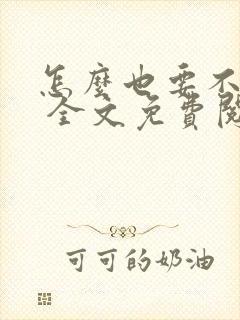 怎麼也要不
全文免費閱
可可的奶油